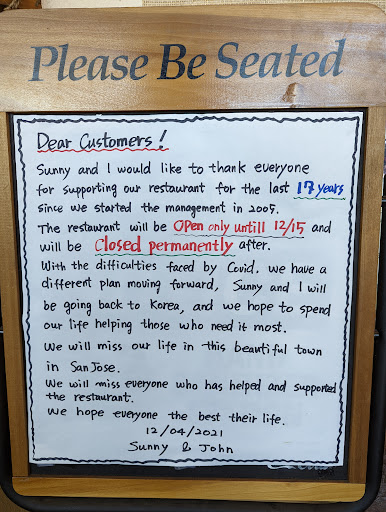 Please Be Seated
Dear Customers!
Sunny and I would like to thank everyone
for supporting our restaurant for the last 17 years
since we started the management in 2005.
The restaurant will be open only untill 12/15 and
will be closed permanently after.
With the difficulties faced by Covid. we have a
different plan moving forward, Sunny and I will
be going back to Korea, and we hope to spend
our life helping those who need it most.
We will miss our life in this beautiful town
in San Jose.
We will miss everyone who has helped and supported
the restaurant.
We hope everyone the best their life.
12/04/2021
Sunny & John